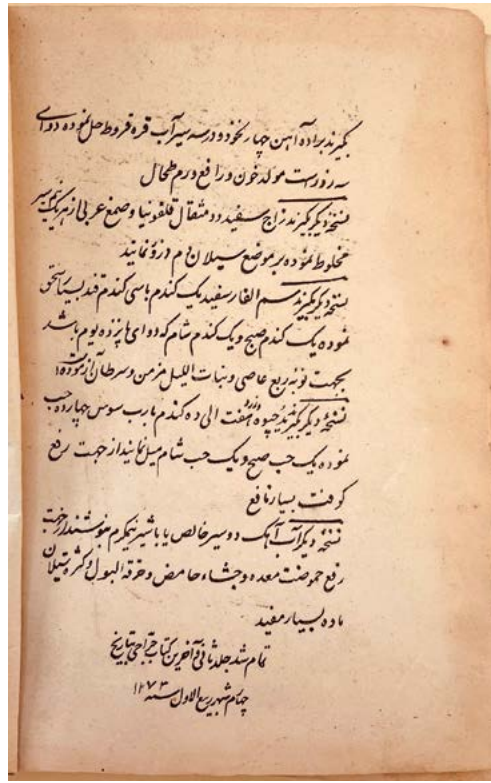 بگیرند براده آهن چهار نخود و در سه سیر آب قره قروط حل نموده دوای
سه روز است مولد خون و رافع ورم طحال
نسخه دیگر بگیرند زاج سفید دو مثقال قلفونیا و صمغ عربی از هر یک نیم سیر
مخلوط نموده بر موضع سیلان دم ذرو نمایند
نسخه دیگر بگیرند سم الفار سفید یک گندم با سی گندم قند بسیار سحق
نموده یک گندم صبح و یک گندم شام که دوای پانزده یوم باشد
بجهت نوبه ربع عاصی و بنات اللیل مزمن و سرطان آزموده
نسخه دیگر بگیرند جیوه هفت الی ده گندم با رب سوس چهارده حب
نموده یک حب صبح و یک حب شام میل نمایند از جهت رفع
کوفت بسیار نافع
نسخه دیگر آب آهک دو سیر خالص یا با شیر نیم گرم بنوشند از جهت
رفع حموضت معده و جشاء حامض و حرقة البول و کثرة سیلان
ماده بسیار مفید
تمام شد جلد ثانی و آخرین کتاب جراحی بتاریخ
چهارم شهر ربیع الاول سنه ۱۲۷۳